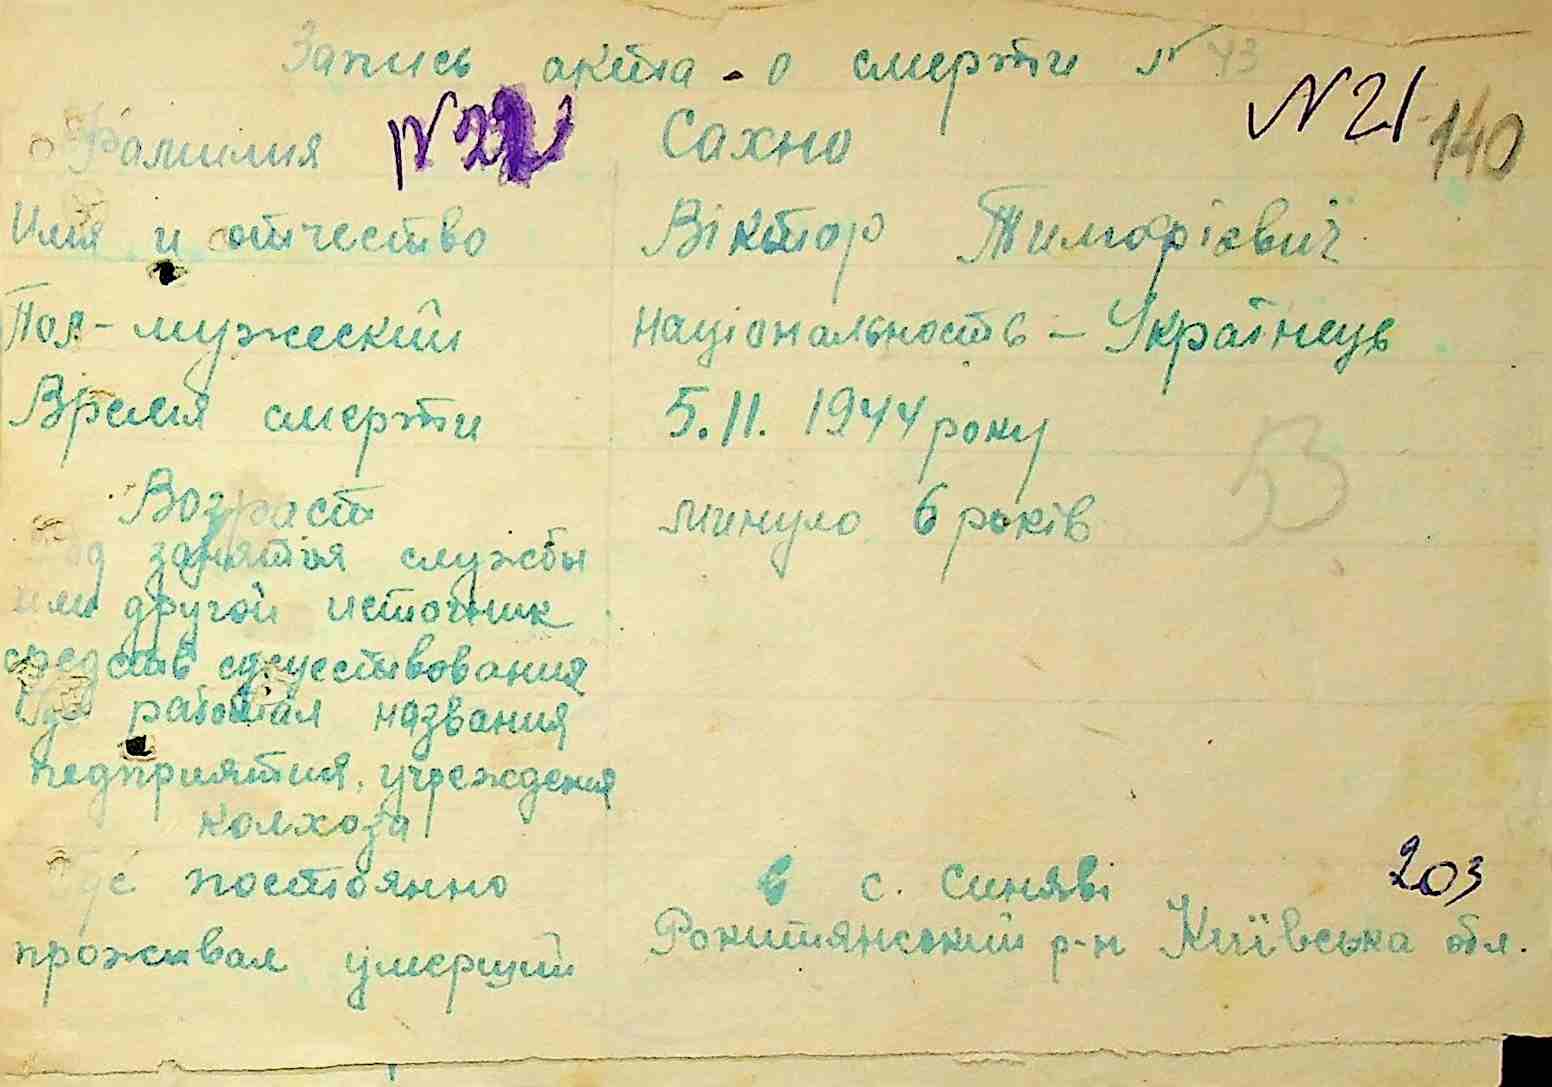 Запись акта о смерти № 43
№21
140
Фамилия №22 Сахно
Имя и отчество Віктор Тимофієвич
Пол - мужеский національность - Українець
Время смерти 5.11. 1944 року
53
Возраст минуло 6 років
Род занятия службы
или другой источник
средств существования
Где работал названия
педприятия, учреждения
колхоза
Где постоянно в с. Синяві 203
проживал умерщий Рокитянський р-н Київська обл.